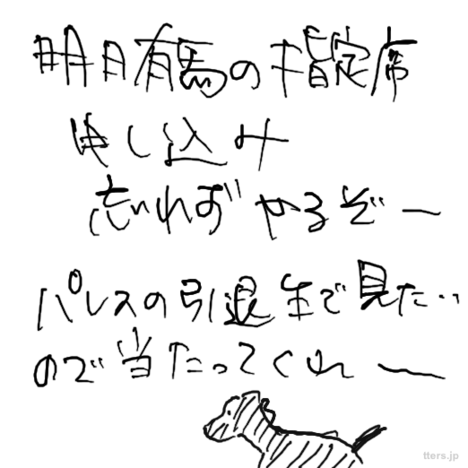 明日有馬の指定席
申し込み
忘れずやるぞー
パレスの引退生で見た‥
ので当たってくれー
tters.jp